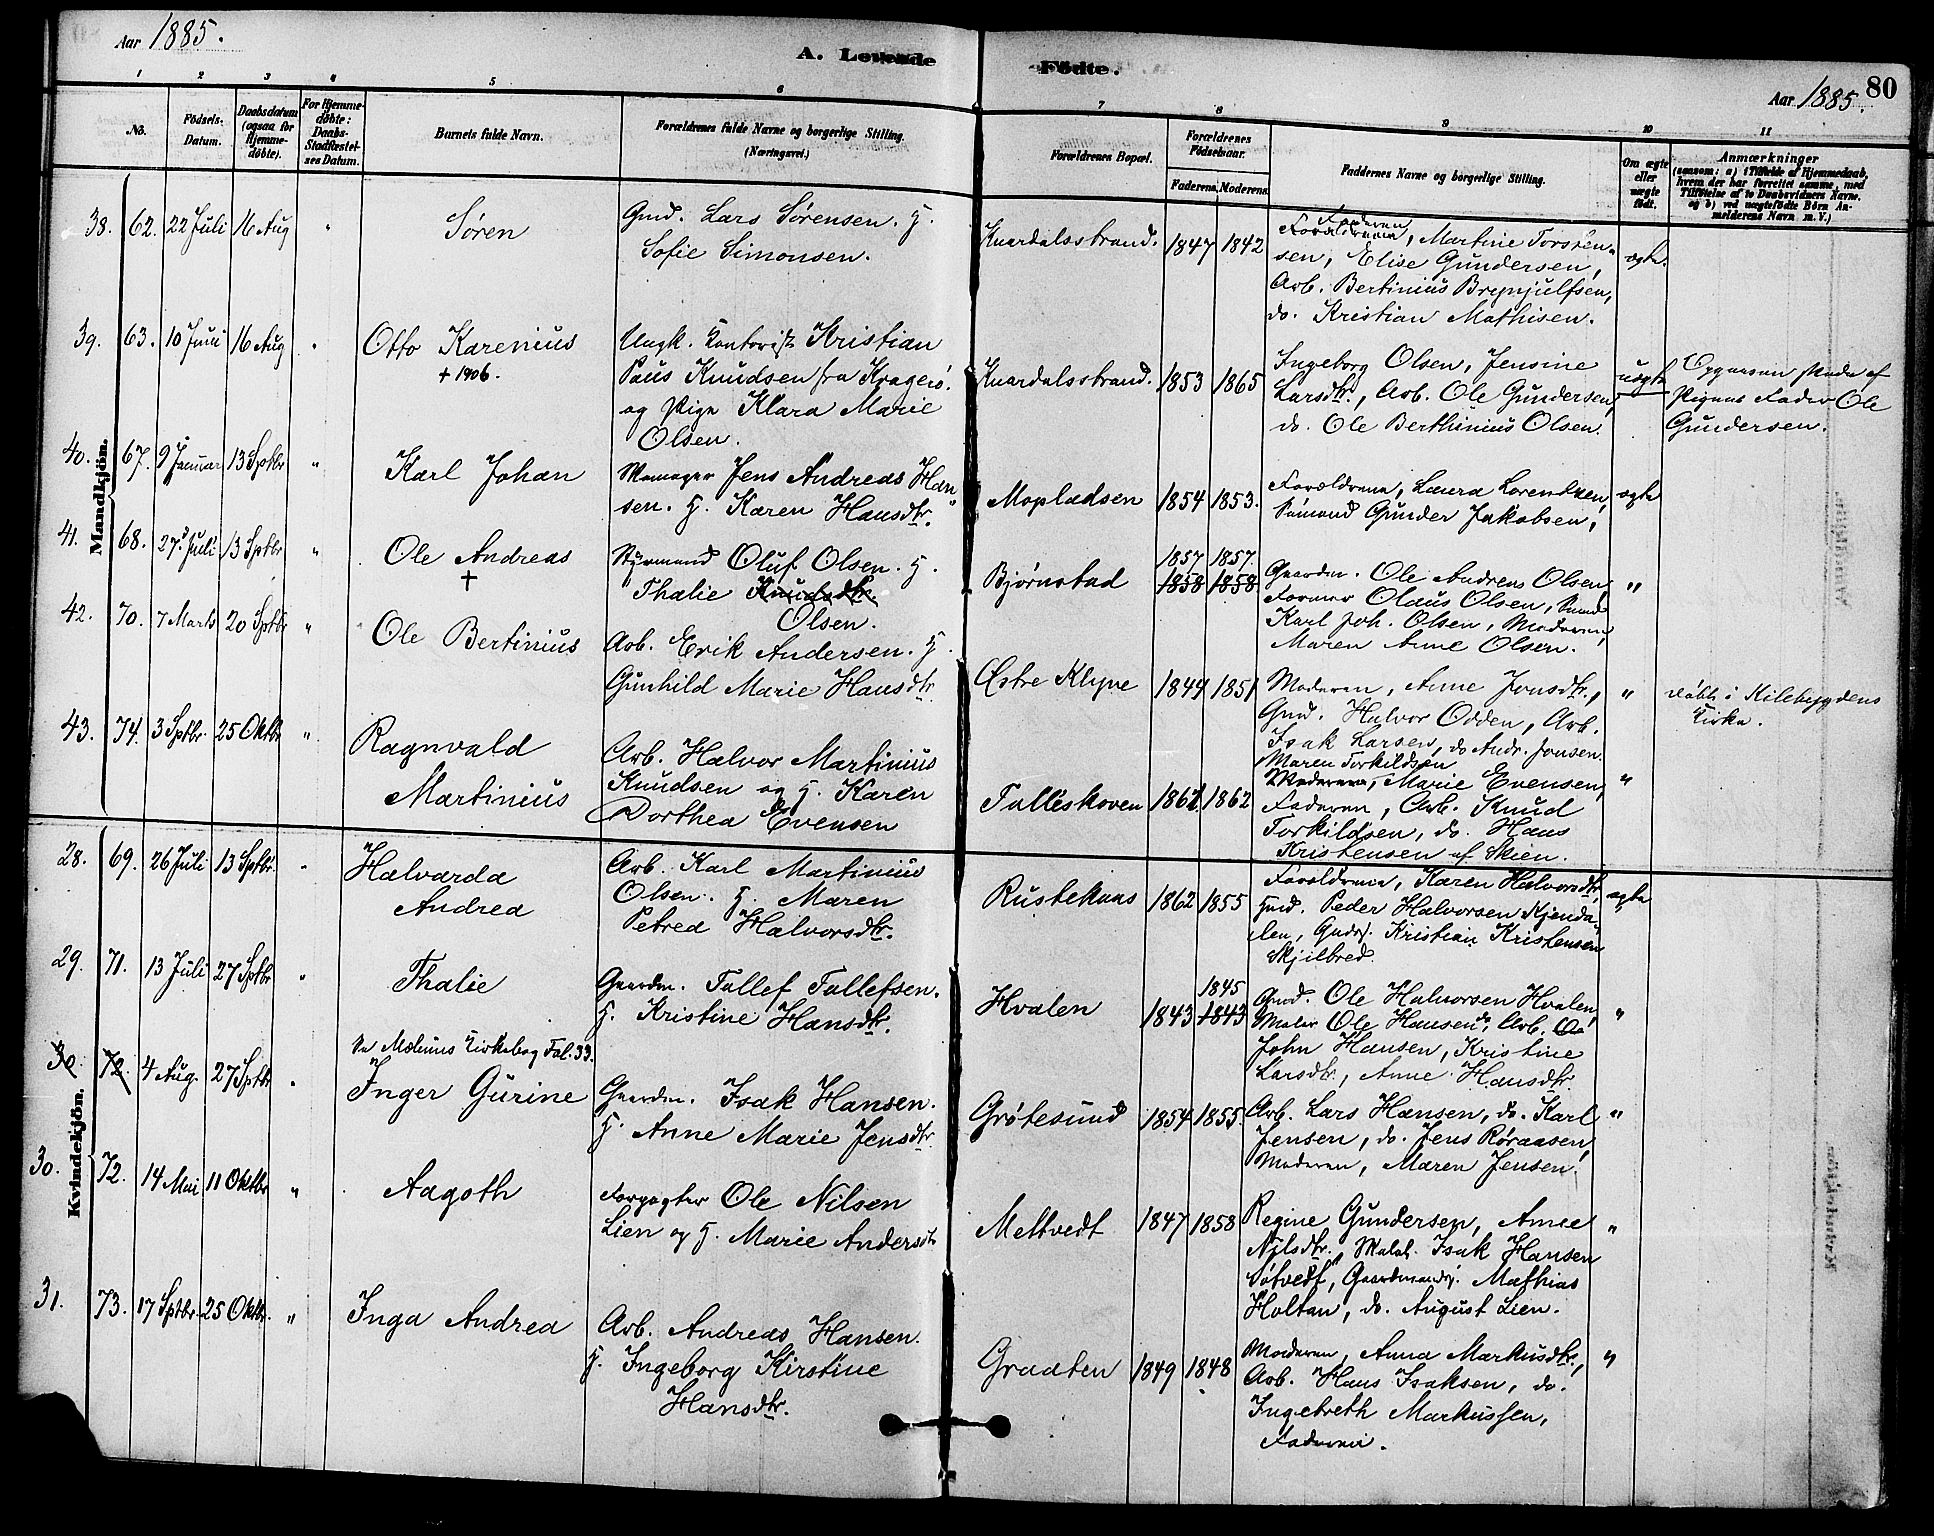 Aar 1885.
A. Levende Födte.
Aar 1885. 80
1 2 3 4 5 6 7 8 9 10 11
No.
Födsels-Datum.
Daabsdatum (ogsaa for Hjemme-döbte).
For Hjemme-döbte: Daabs-Stadfæstel-ses Datum.
Barnets fulde Navn.
Forældrenes fulde Navne og borgerlige Stilling.
(Næringsvei.)
Forældrenes Bopæl.
Forældrenes Födselsaar.
Faderens. Moderens.
Faddernes Navne og borgerlige Stilling.
Om ægte eller uægte födt.
Anmærkninger
(saasom: a) i Tilfælde af Hjemmedaab,
hvem der har forrettet samme, med
Tilföielse af to Daabsvidners Navne.
og b) ved uægtefödte Börn An-
melderens Navn m. V.)
Mandkjön.
38. 62. 22 Juli 16 Aug " Søren
Gmd. Lars Sørensen. H.
Sofie Simonsen.
Knardalsstrand. 1847 1842
Faderen
Forældrene, Martine Torsten-
sen, Elise Gundersen,
Arb. Bertinius Brynjulfsen,
do. Kristian Mathisen.
ægte.
39. 63. 10 Juni 16 Aug " Otto Karenius
+ 1906.
Ungk. Kontorist Kristian
Paus Knudsen fra Kragerö.
og Pige Klara Marie
Olsen.
Knardalsstrand. 1853 1865
Ingeborg Olsen, Jensine
Larsdtr., Arb. Ole Gundersen,
do. Ole Berthinius Olsen.
uægte
Opgaven skede af
Pigens Fader Ole
Gundersen.
40. 67. 9 Januar 13 Sptbr " Karl Johan
Jens Andreas Han-
sen. H. Karen Hansdtr.
Mopladsen 1854 1853.
Forældrene, Laura Lorendsen,
Sømand Gunder Jakobsen,
ægte
41. 68. 27 Juli 13 Sptbr " Ole Andreas
+
Styrmand Oluf Olsen. H.
Thalie Knudsdtr.
Olsen.
Bjørnstad
1857 1857.
1858 1858.
Gaardm. Ole Andreas Olsen,
Former Olaus Olsen, Sømd
Karl Joh. Olsen, Moderen,
Maren Anne Olsen.
"
42. 70. 7 Marts 20 Sptbr " Ole Bertinius
Arb. Erik Andersen. H.
Gunhild Marie Hansdtr.
Østre Klyve 1844 1851
Moderen, Anne Jonsdtr.,
Gmd. Halvor Odden, Arb.
Isak Larsen, do Andr. Jonsen.
"
døbt i Kilebygdens
Kirke.
43. 74. 3 Sptbr. 25 Oktbr " Ragnvald
Martinius
Arb. Halvor Martinius
Knudsen og H. Karen
Dorthea Evensen
Tolleskoven 1861. 1862
Maren Torkildsen
Moderen, Marie Evensen,
Faderen, Arb. Knud
Torkildsen, do. Hans
Kristensen af Skien.
"
Kvindekjön.
28. 69. 26 Juli 13 Sptbr. " Halvarda
Andrea
Arb. Karl Martinius
Olsen. H. Maren
Petrea Halvorsdtr.
Rustekaas 1862 1855
Forældrene, Karen Halvorsdtr,
Gmd. Peder Halvorsen Kjenda-
len, Gmdsj. Kristian Kristensen
Skjilbred.
ægte
29. 71. 13 Juli 27 Sptbr " Thalie
Gaardm. Tollef Tollefsen.
H. Kristine Hansdtr.
Hvalen 1843
1845
1843
Gmd. Ole Halvorsen Hvalen,
Maler Ole Hansen do, Arb. Ole
John Hansen, Kristine
Larsdtr, Anne Hansdtr.
"
Se Melums Kirkebog Fol. 33.
30. 72. 4 Aug. 27 Sptbr " Inger Gurine
Gaardm. Isak Hansen.
H. Anne Marie Jensdtr.
Grøtesund 1854 1855.
Arb. Lars Hansen, do. Karl
Jensen, do. Jens Røraasen,
Moderen, Maren Jensen.
"
30. 72. 14 Mai 11 Oktbr " Aagoth
Forpagter Ole Nilsen
Lien og H. Marie Andersdtr
Meltvedt 1847 1858
Regine Gundersen, Anne
Nilsdtr., Malel. Isak Hansen
Søtvedt, Gaardmandsj. Mathias
Holtan, do. August Lien.
"
31. 73. 17 Sptbr. 25 Oktbr. " Inga Andrea
Arb. Andreas Hansen.
H. Ingeborg Kirstine
Hansdtr.
Graaten 1849 1848
Moderen, Anna Markusdtr,
Arb. Hans Isaksen, do.
Ingebreth Markussen,
Faderen.
"